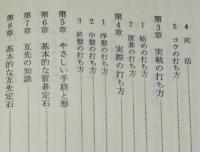 4 死活
5 コウの打ち方
第3章 実戦の打ち方
1 始めの打ち方
2 置碁の打ち方
第4章 実際の打ち方
1 序盤の打ち方
2 中盤の打ち方
3 終盤の打ち方
第5章 やさしい手筋と形
第6章 基本的な置碁定石
第7章 互先の知識
第8章 基本的な互先定石